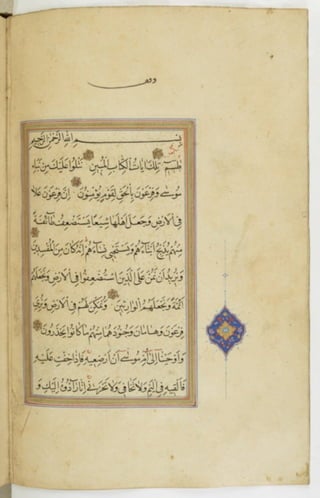 وقف
بسم الله الرحمن الرحيم
طسم تلك ايات الكتاب المبين نتلوا عليك من نباء
موسى وفرعون بالحق لقوم يؤمنون ان فرعون علا
في الارض وجعل اهلها شيعا يستضعف طائفة
منهم يذبح ابناءهم ويستحيى نساءهم انه كان من المفسدين
ونريد ان نمن على الذين استضعفوا في الارض ونجعلهم
ائمة ونجعلهم الوارثين ونمكن لهم في الارض ونرى
فرعون وهامان وجنودهما منهم ما كانوا يحذرون
واوحينا الى ام موسى ان ارضعيه فاذا خفت عليه
فالقيه في اليم ولا تخافي ولا تحزني انا رادوه اليك و